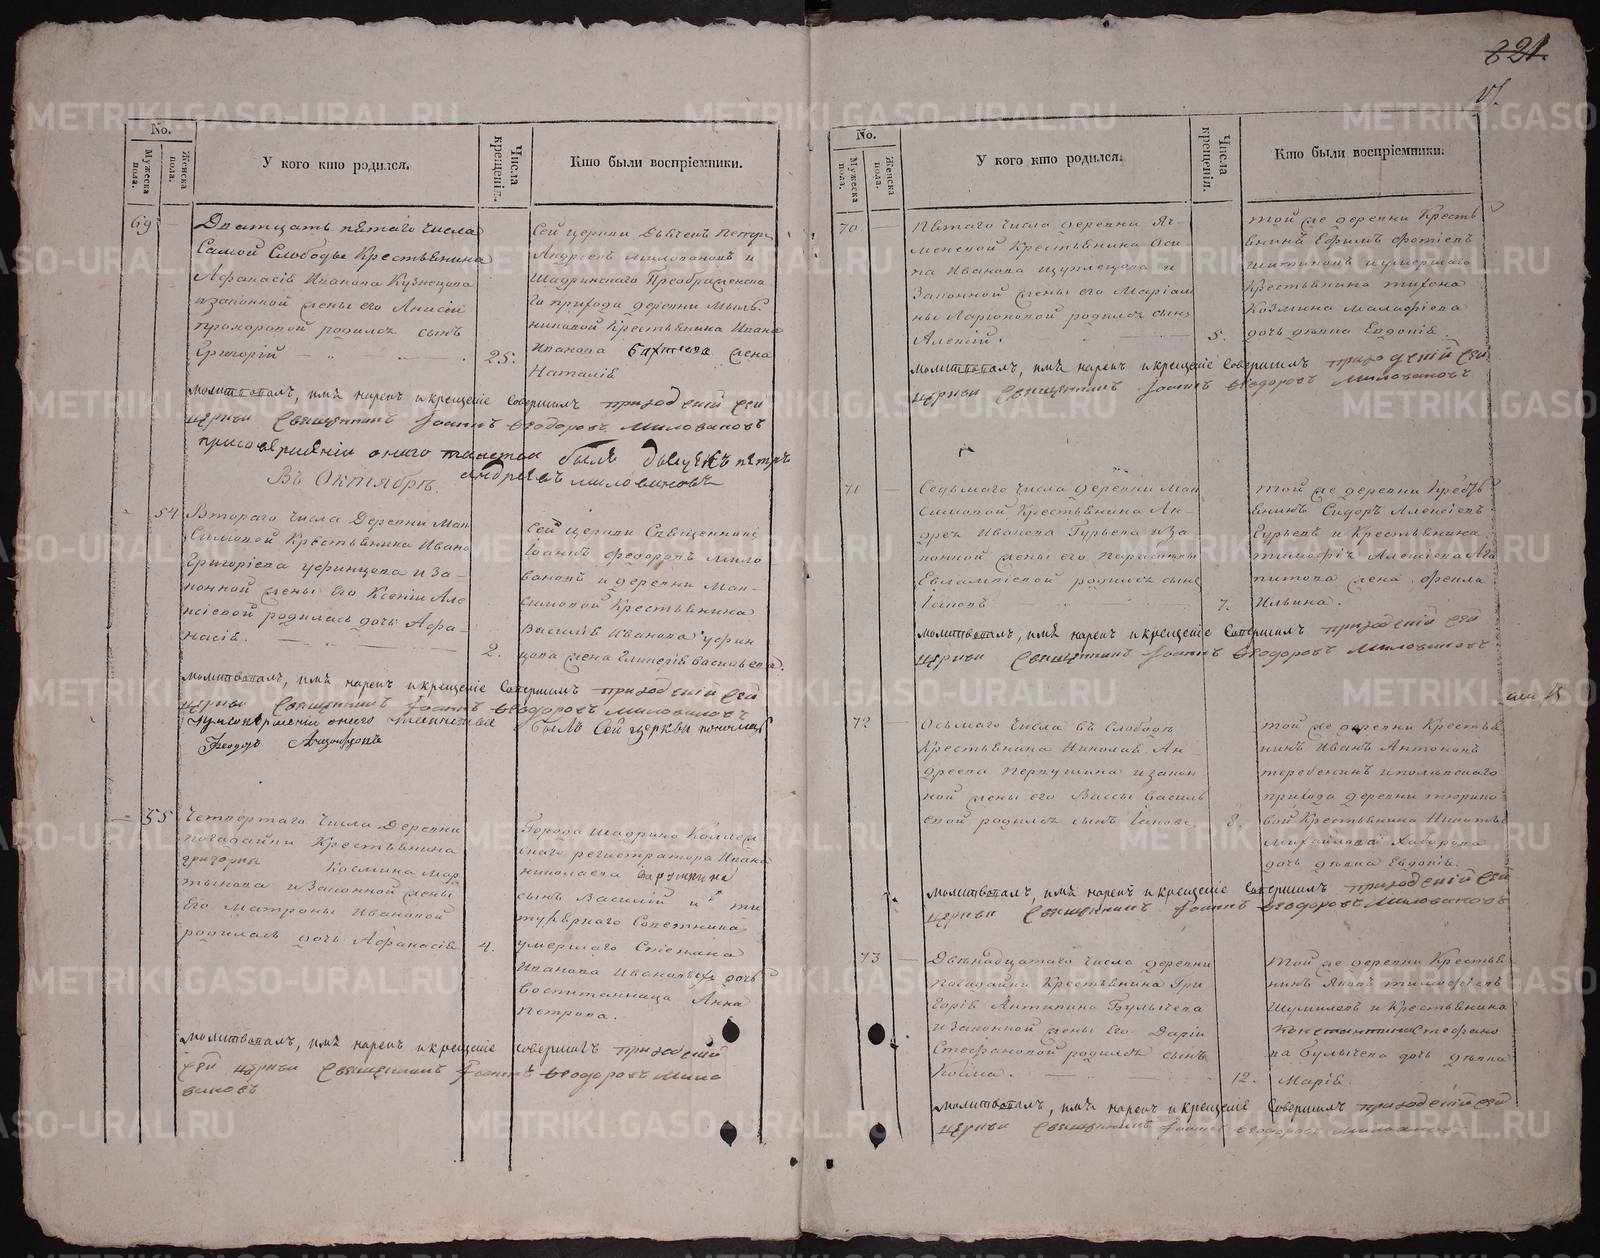 821.
No.
Мужеска пола.
Женска пола.
У кого кто родился.
Числа крещенія.
Кто были воспріемники.
69
Дватцать пятаго числа
Самой Слободы Крестьянина
Афанасія Иванова Кузнецова
и законной жены его Анисіи
Прохоровой родился сынъ
Григорій
25.
Сей церкви Дьячекъ Петръ
Андреевъ Миловановъ и
Шадринскаго Преображенска
го прихода деревни Мыль
никовой Крестьянина Ивана
Иванова жена
Наталія
молитвовалъ, имя нарекъ и крещеніе совершилъ приходскій сей
церкви Священникъ Іоаннъ Ѳеодоровъ Миловановъ
при совершеніи онаго таинства былъ дьячекъ петръ
Андреевъ миловановъ
Въ Октябрѣ.
54
Втораго числа Деревни Мак
симовой Крестьянина Ивана
Григоріева Уфинцова и за
конной жены его Ксеніи Але
ксіевой родилась дочь Афа
насія.
2.
Сей церкви Священникъ
Іоаннъ Феодоровъ Мило
вановъ и деревни Мак
симовой Крестьянина
Василія Иванова Уфин
цова жена Гликерія Васильева.
молитвовалъ, имя нарекъ и крещеніе совершилъ приходскій сей
церкви Священникъ Іоаннъ Ѳеодоровъ Миловановъ
при совершеніи онаго таинства былъ Сей церкви пономарь
Феодоръ
55
Четвертаго числа Деревни
Погадайки Крестьянина
григорья Космина Мар
тынова и законной жены
Его Матроны Ивановой
родилась дочь Афанасія
4.
Города Шадрина Коллеж
скаго регистратора Ивана
Николаева
сынъ Василій и ти
тулярнаго Советника
умершаго Стефана
Иванова дочь
воспитанница Анна
Петрова.
молитвовалъ, имя нарекъ и крещеніе совершилъ приходскій
сей церкви Священникъ Іоаннъ Ѳеодоровъ Мило
вановъ
No.
Мужеска пола.
Женска пола.
У кого кто родился.
Числа крещенія.
Кто были воспріемники.
70.
Пятаго числа деревни Яч
меневой Крестьянина Оси
па Иванова Щуплецова и
законной жены его Маріам
ны Ларіоновой родился сынъ
Алексій.
5.
той же деревни Кресть
янинъ Ефимъ Фотіевъ
и умершаго
Крестьянина тихона
Козмина
дочь девка Евдокія.
молитвовалъ, имя нарекъ и крещеніе совершилъ приходскій сей
церкви Священникъ Іоаннъ Ѳеодоровъ Миловановъ
71
Седьмаго числа деревни Мак
симовой Крестьянина Ан
дрея Иванова Гурьева и за
конной жены его Парасковьи
Евлампіевой родился сынъ
Іаковъ
7.
той же деревни Кресть
янинъ Сидоръ Алексіевъ
Гурьевъ и Крестьянина
тимофея Алексіева Ага
питова жена Фекла
Ильина.
молитвовалъ, имя нарекъ и крещеніе совершилъ приходскій сей
церкви Священникъ Іоаннъ Ѳеодоровъ Миловановъ
72
Осьмаго числа въ слободѣ
Крестьянина Николая Ан
дреева и закон
ной жены его Вассы Василь
евой родился сынъ Іаковъ
8.
той же деревни Крестья
нинъ Иванъ Антоновъ
теребенинъ
прихода деревни тюрико
вой Крестьянина Никиты
Михайлова Хаборова
дочь девка Евдокія.
молитвовалъ, имя нарекъ и крещеніе совершилъ приходскій сей
церкви Священникъ Іоаннъ Ѳеодоровъ Миловановъ
73
Двенадцатаго числа деревни
Погадайки Крестьянина Гри
горія Антипина Булычева
и законной жены его Даріи
Стефановой родился сынъ
Козма.
12.
Той же деревни Крестья
нинъ Яковъ тимофіевъ
Шумиловъ и Крестьянина
Константина Стефано
ва Булычева дочь девка
Марія.
молитвовалъ, имя нарекъ и крещеніе совершилъ приходскій сей
церкви Священникъ Іоаннъ Ѳеодоровъ Миловановъ
METRIKI.GASO-URAL.RU